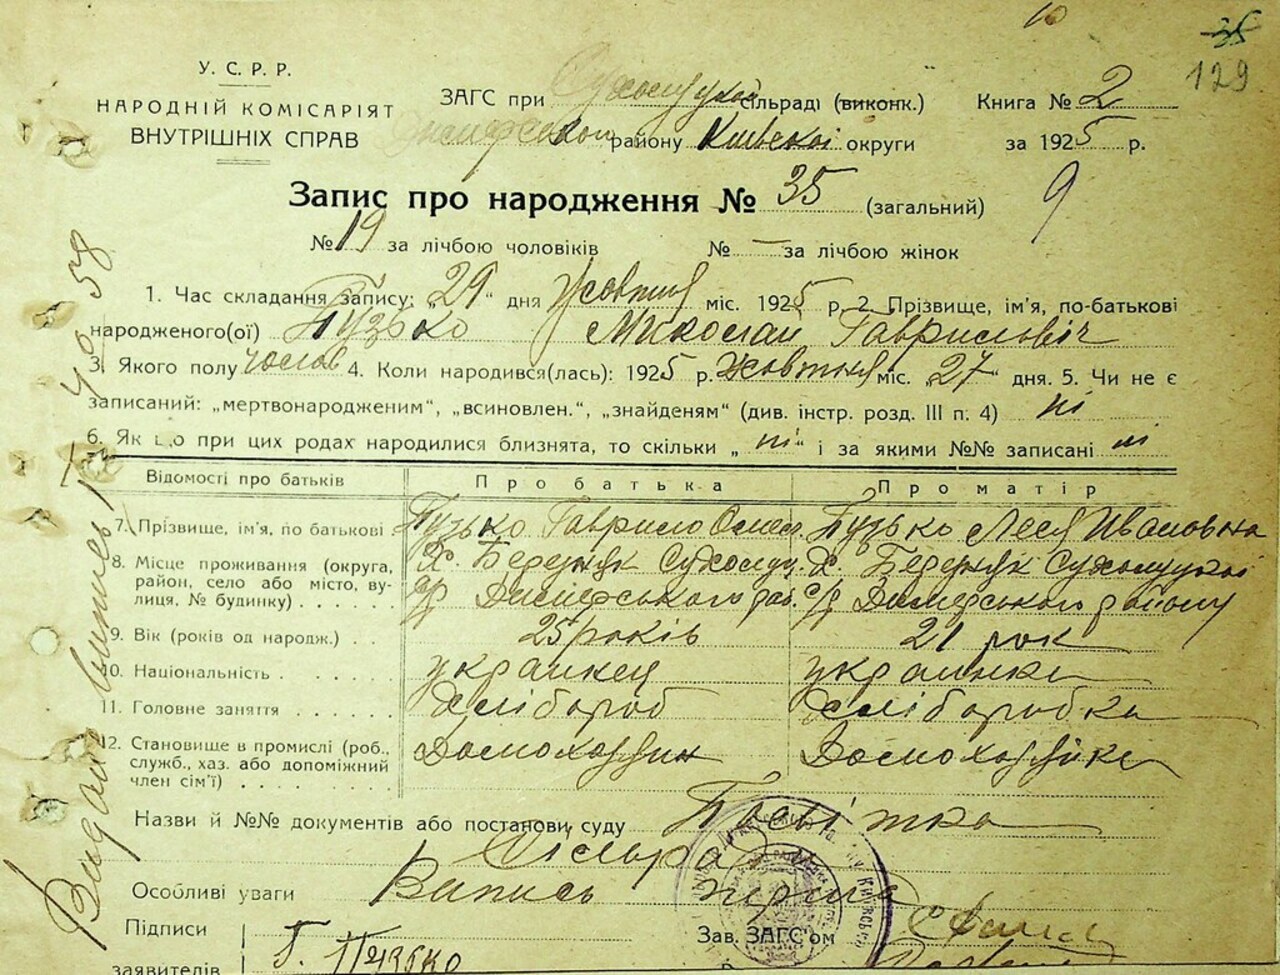 10
35
129
У. С. Р. Р.
НАРОДНІЙ КОМІСАРІЯТ
ВНУТРІШНІХ СПРАВ
ЗАГС при Сухолуцкой сільраді (виконк.)
району Київскої округи
Книга № 2
за 1925 р.
Запис про народження № 35 (загальний)
9
№ 19 за лічбою чоловіків № — за лічбою жінок
1. Час складання запису: „29" дня жовтня міс. 1925 р. 2. Прізвище, ім'я, по-батькові
народженого(ої) Пузько Миколай Гаврилович
3. Якого полу чолов 4. Коли народився(лась): 1925 р. жовтня міс. „27" дня. 5. Чи не є
записаний: „мертвонародженим", „всиновлен.", „знайденям" (див. інстр. розд. III п. 4) ні
6. Як що при цих родах народилися близнята, то скільки „ні" і за якими №№ записані ні
Відомості про батьків Про батька Про матір
7. Прізвище, ім'я, по батькові Пузько Гаврило Пузько Леся Ивановна
8. Місце проживання (округа,
район, село або місто, ву-
лиця, № будинку) . . . . .
Х. Бередчук Сухолуц. Х. Бередчук Сухолуцкої
с/р Димерського рай. с/р Димерського району
9. Вік (років од народж.) . . 25 років 21 рок
10. Національність . украинец украинка
11. Головне заняття . . . . . . хлібороб хліборобка
12. Становище в промислі (роб.,
служб., хаз. або допоміжний
член сім'ї) . . . . . . . . .
Домохазяин Домохазяйка
Назви й №№ документів або постанови суду Посвітка
Сільради
Особливі уваги Запись перша
Підписи
заявителів
Г. Пузько
Зав. ЗАГС'ом
Видан випись